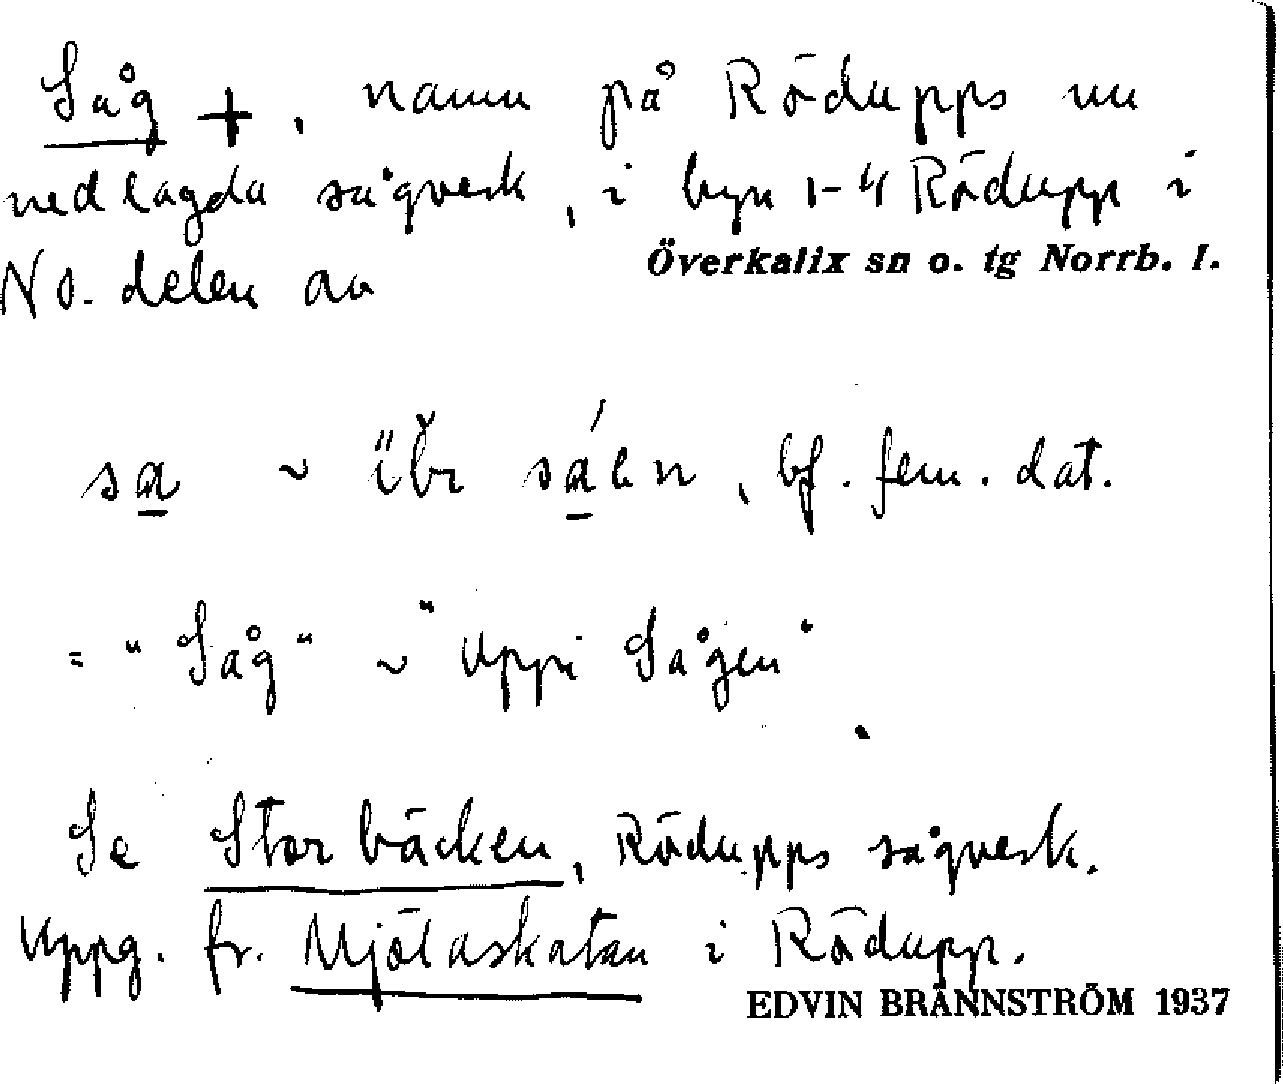 Såg +, namn på Rödupps nu
nedlagda sågverk, i byn 1-4 Rödupp i
Överkalix sn o. tg Norrb. l.
No. delen av
sa ~ sáen, bf. fem. dat.
= "Såg" ~ "Uppi Sågen"
Se Storbäcken, Rödupps sågverk.
Uppg. fr. Mjölaskatan i Rödupp.
EDVIN BRÄNNSTRÖM 1937